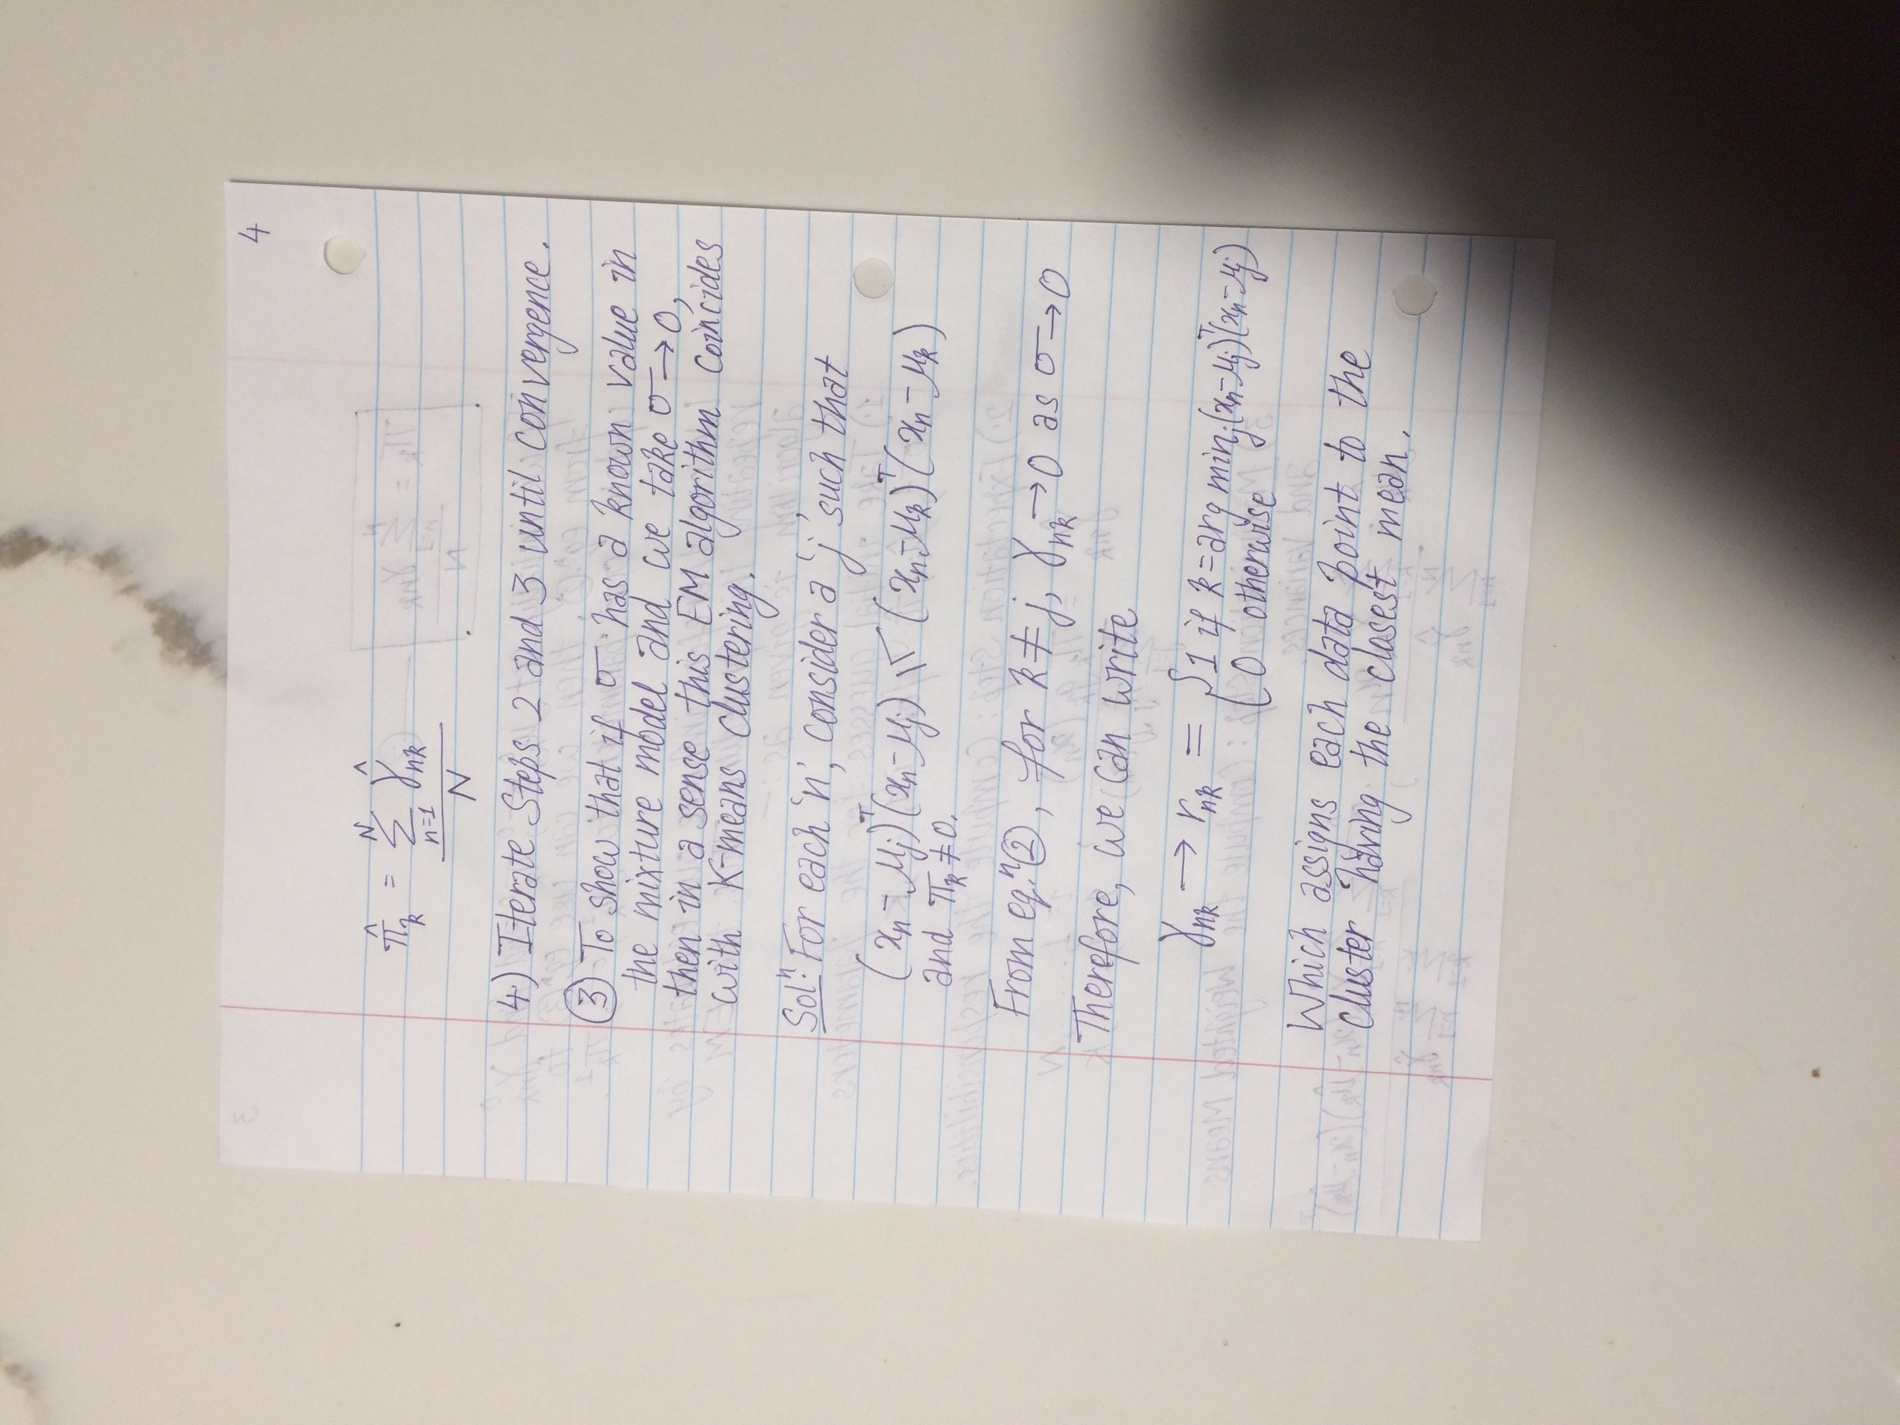 4
π̂_k = Σ_{n=1}^{N} γ̂_{nk} / N
4) Iterate Steps 2 and 3 until convergence.
③ To show that if σ has a known value in
the mixture model and we take σ → 0,
then in a sense this EM algorithm coincides
with K-means clustering.
Solⁿ: For each 'n', consider a 'j' such that
(x_n - μ_j)^T (x_n - μ_j) ≤ (x_n - μ_k)^T (x_n - μ_k)
and π_k ≠ 0.
From eqⁿ ②, for k ≠ j, γ_{nk} → 0 as σ → 0
Therefore, we can write
γ_{nk} → r_{nk} = { 1 if k = arg min_j (x_n - μ_j)^T (x_n - μ_j)
0 otherwise
Which assigns each data point to the
cluster having the closest mean.